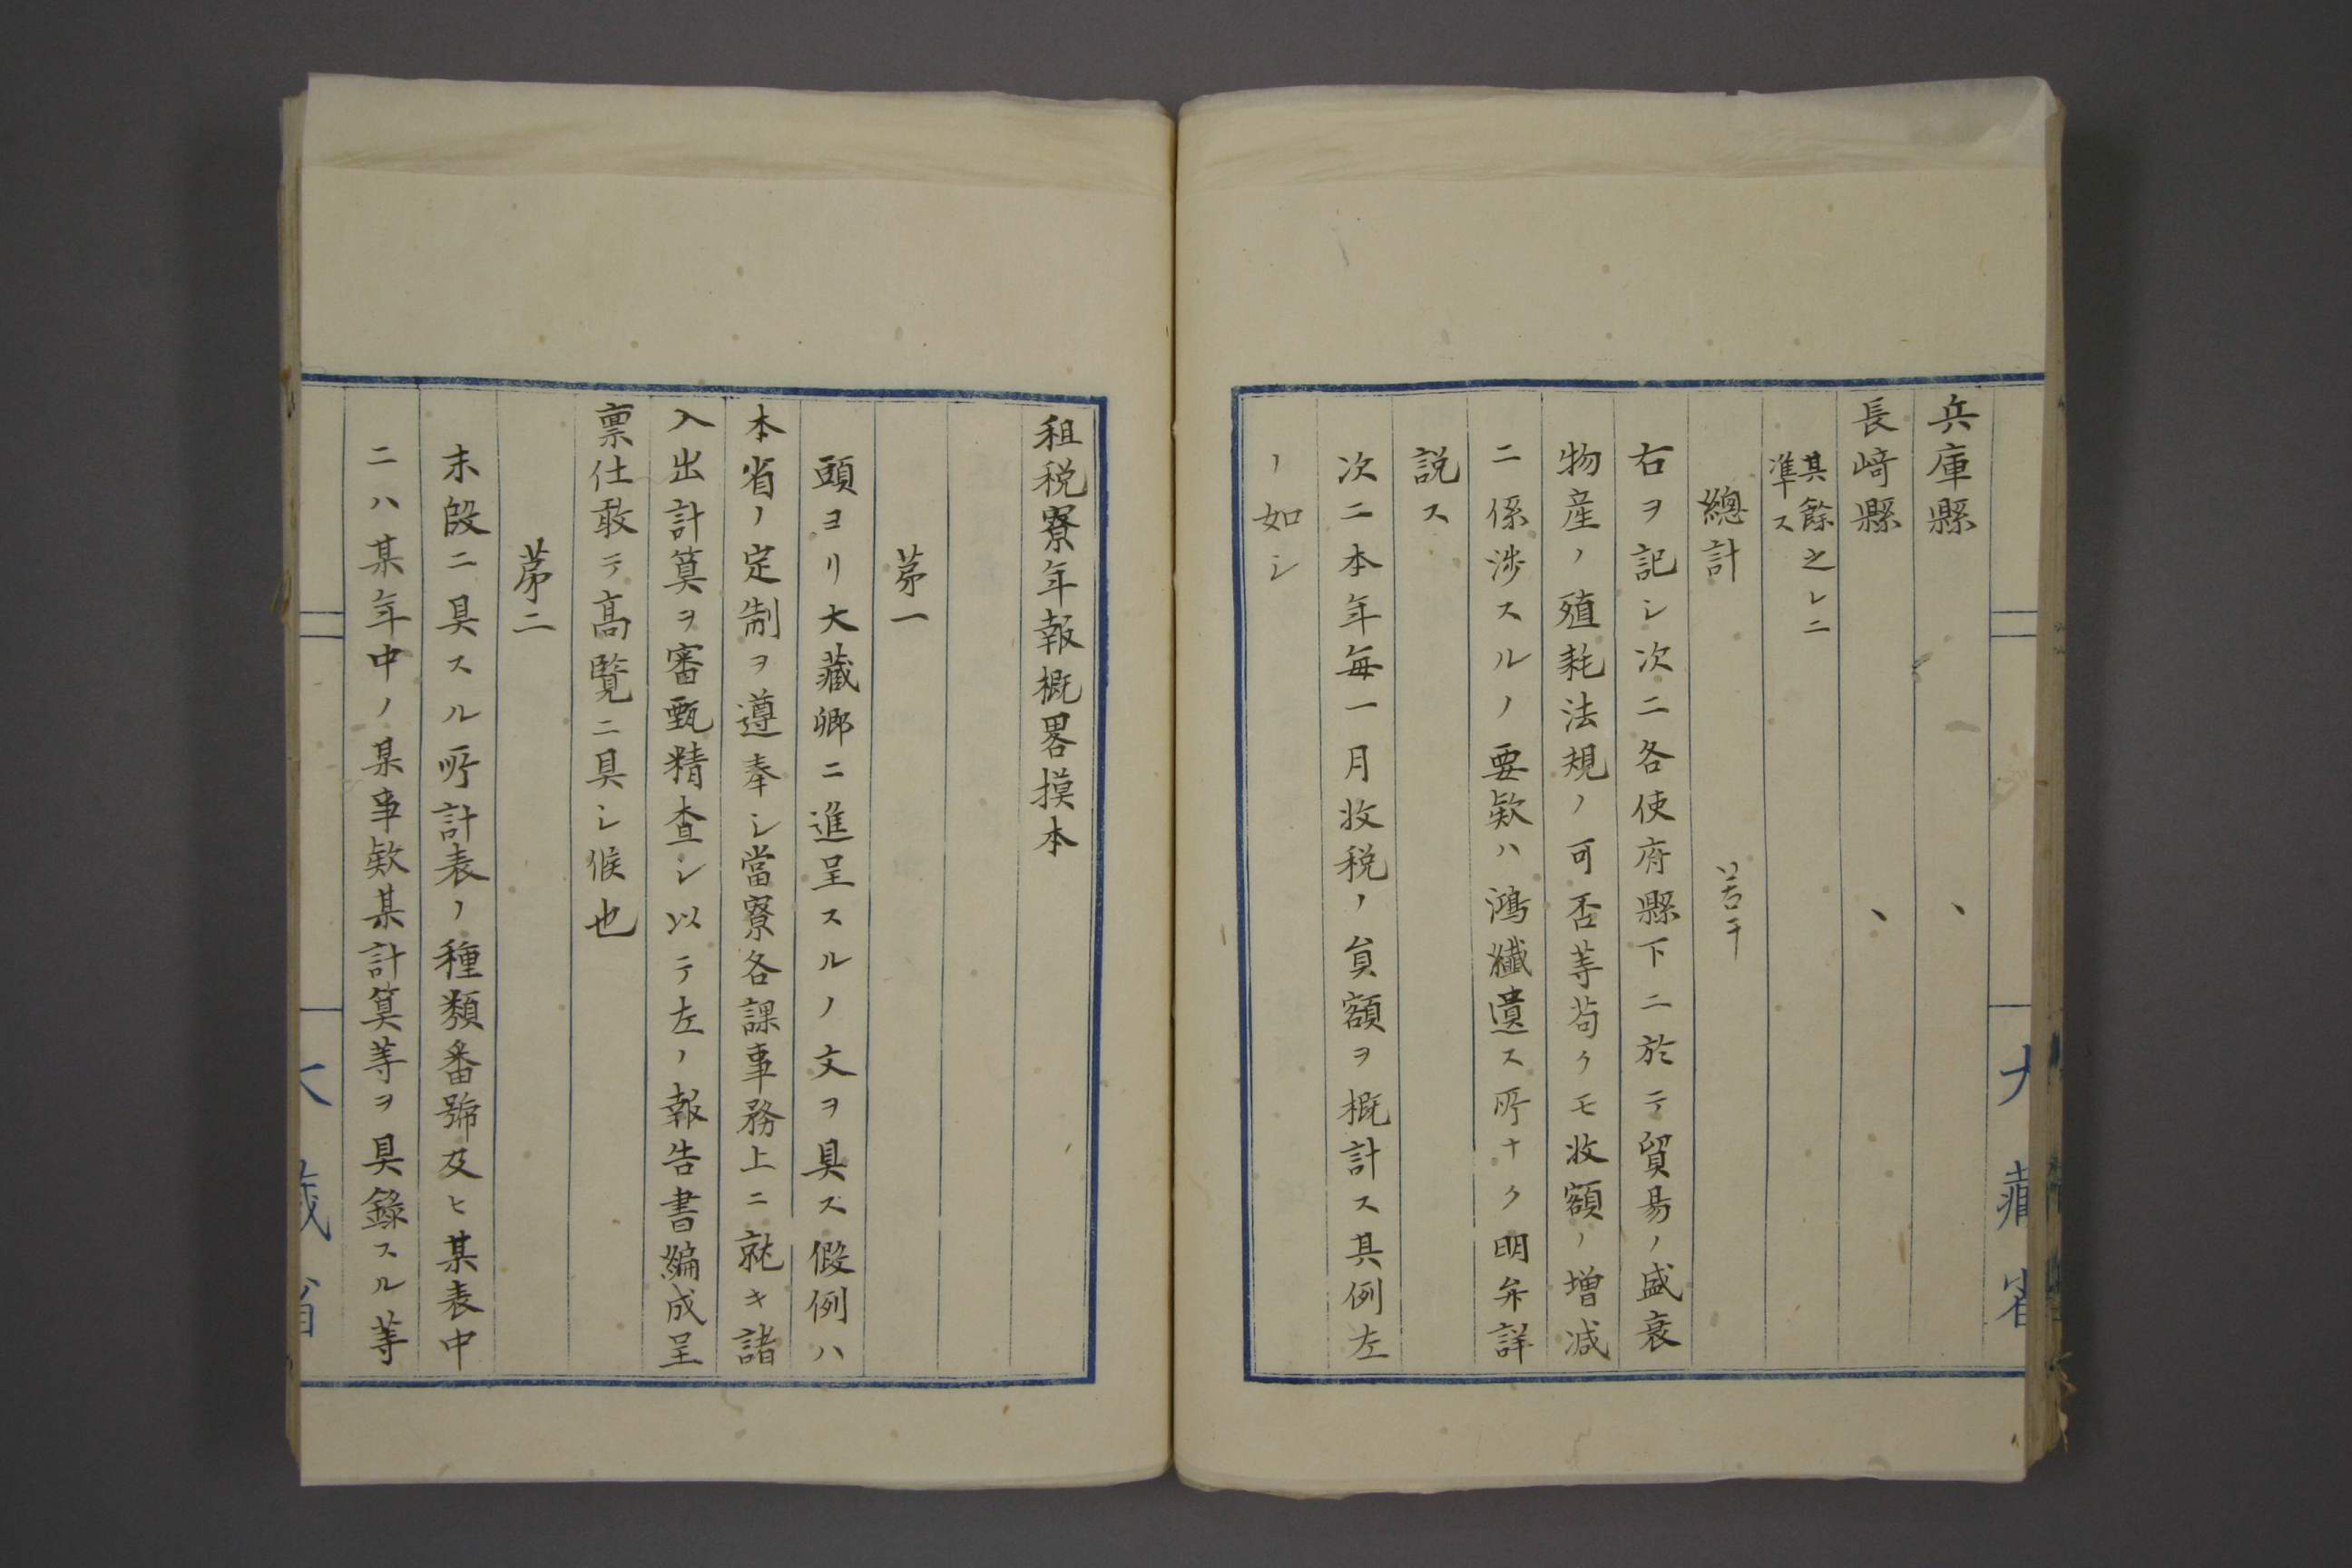 兵庫縣　　、
長崎縣　　、
其餘之レニ
準ス
總計　　若干
右ヲ記シ次ニ各使府縣下ニ於テ貿昜ノ盛衰
物産ノ殖耗法規ノ可否等苟クモ收額ノ増减
ニ係渉スルノ要欵ハ鴻纎遺ス所ナク明弁詳
説ス
次ニ本年毎一月收税ノ員額ヲ概計ス其例左
ノ如シ
大藏省
租税寮年報概畧摸本
第一
頭ヨリ大藏卿ニ進呈スルノ文ヲ具ス假例ハ
本省ノ定制ヲ遵奉シ當寮各課事務上ニ就キ諸
入出計算ヲ審甄精査シ以テ左ノ報告書編成呈
禀仕敢テ高覧ニ具シ候也
第二
末段ニ具スル所計表ノ種類番號及ヒ某表中
ニハ某年中ノ某事欵某計算等ヲ具錄スル等
大藏省